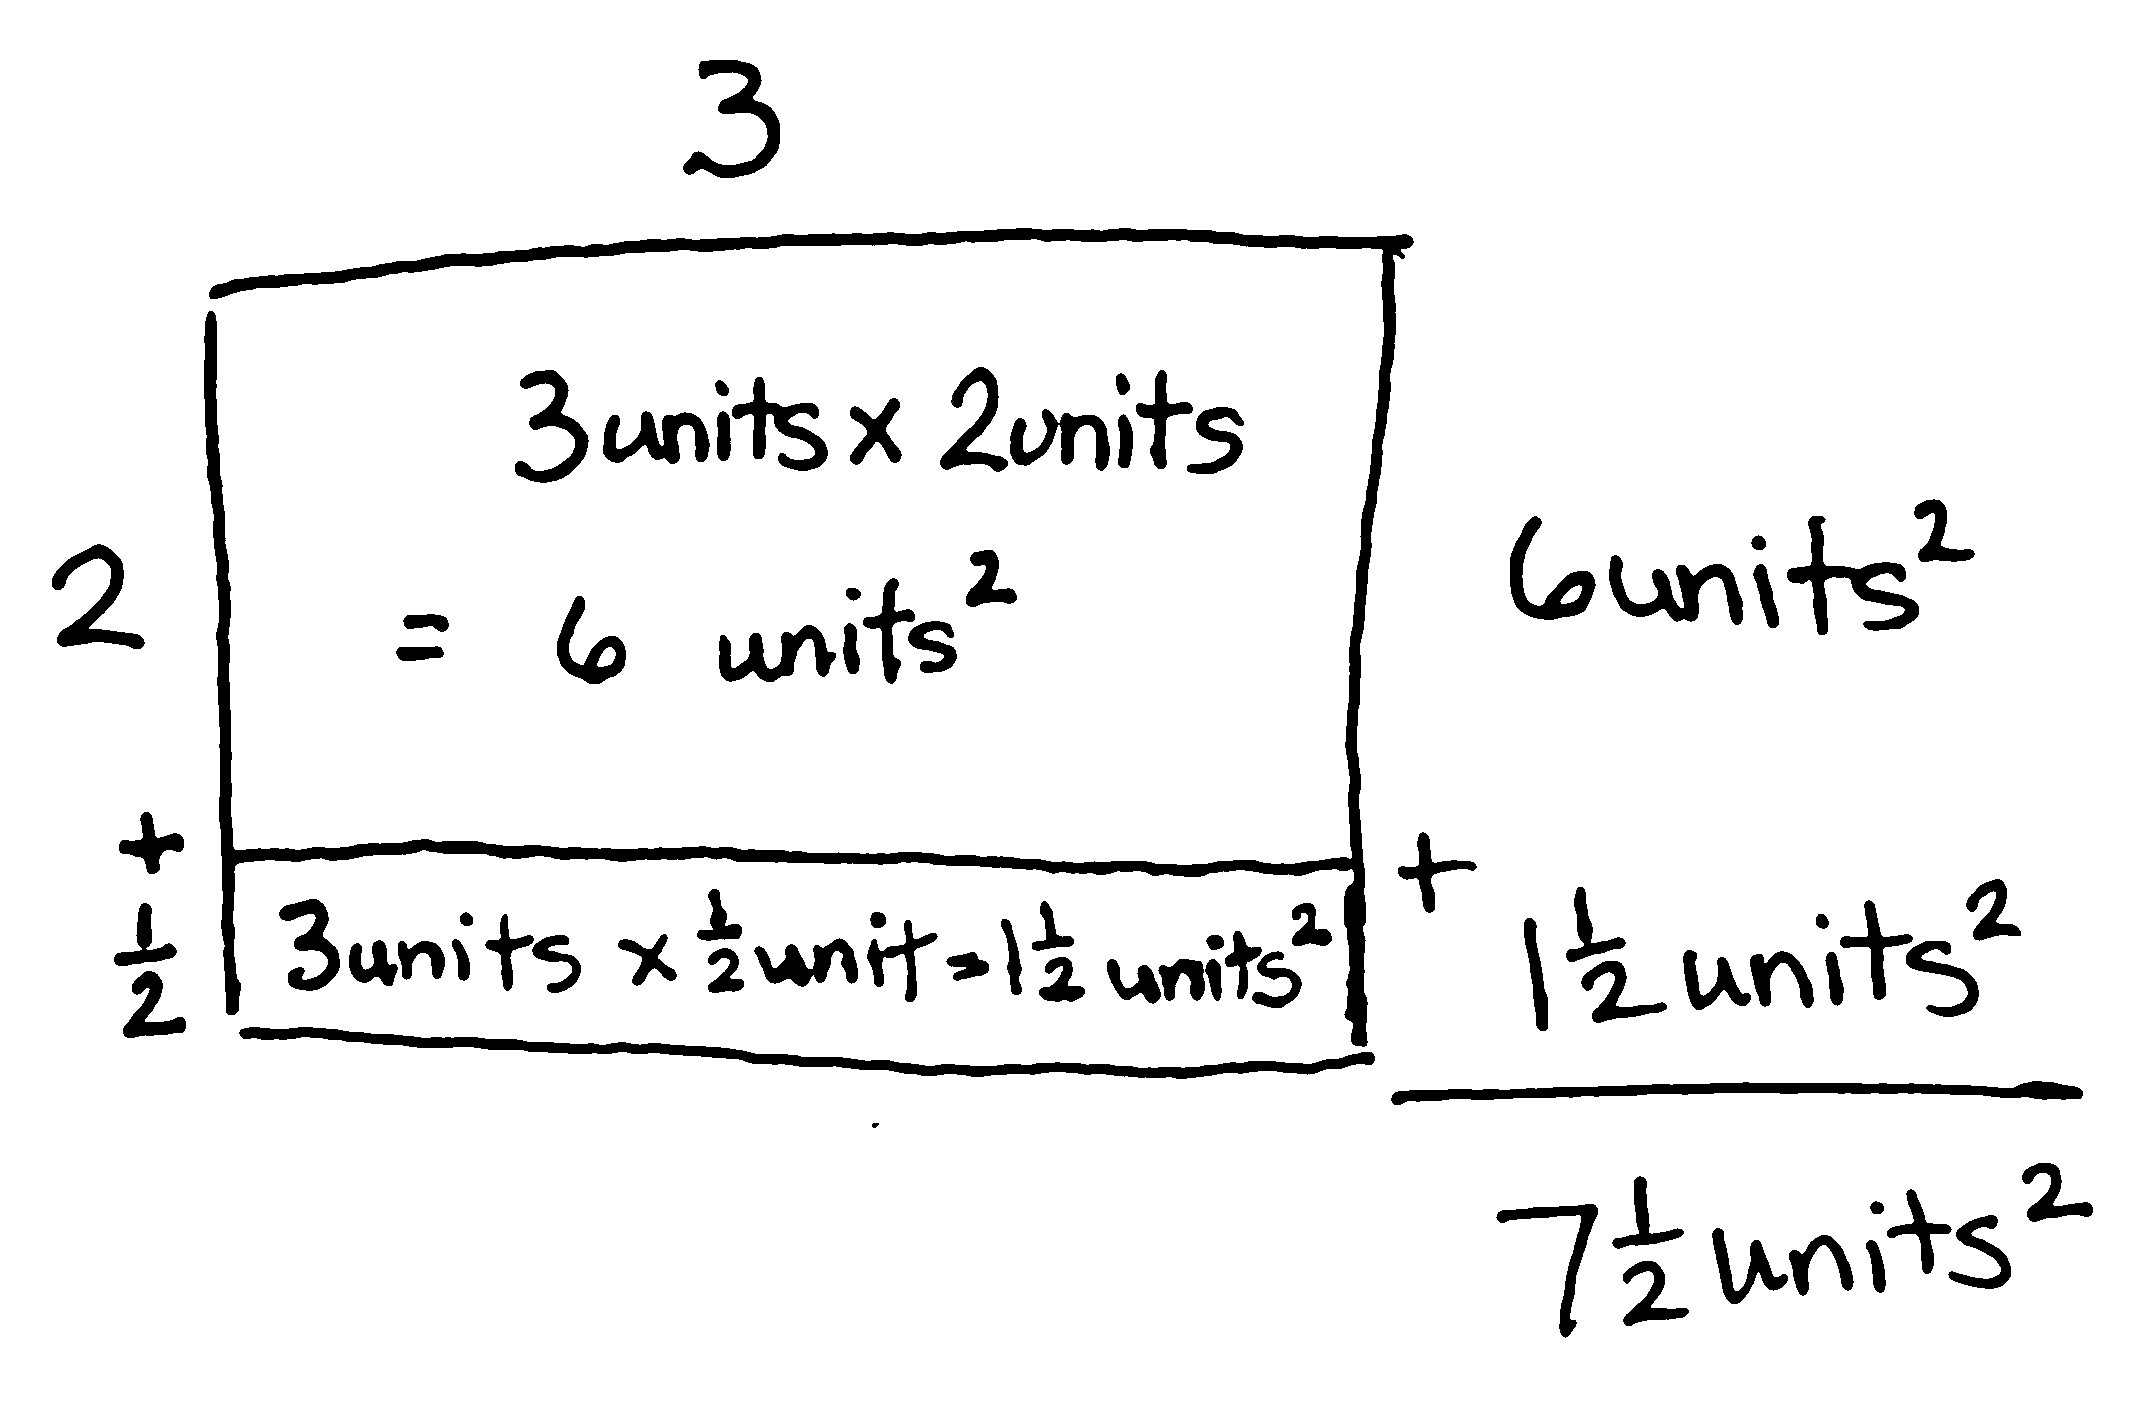 3
3 units x 2 units
= 6 units²
2
+
1/2
3 units x 1/2 unit = 1 1/2 units²
6 units²
+
1 1/2 units²
7 1/2 units²